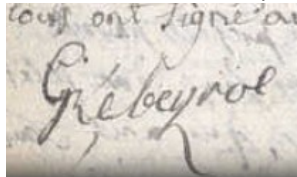 tous ont signé au
Grébeyroe